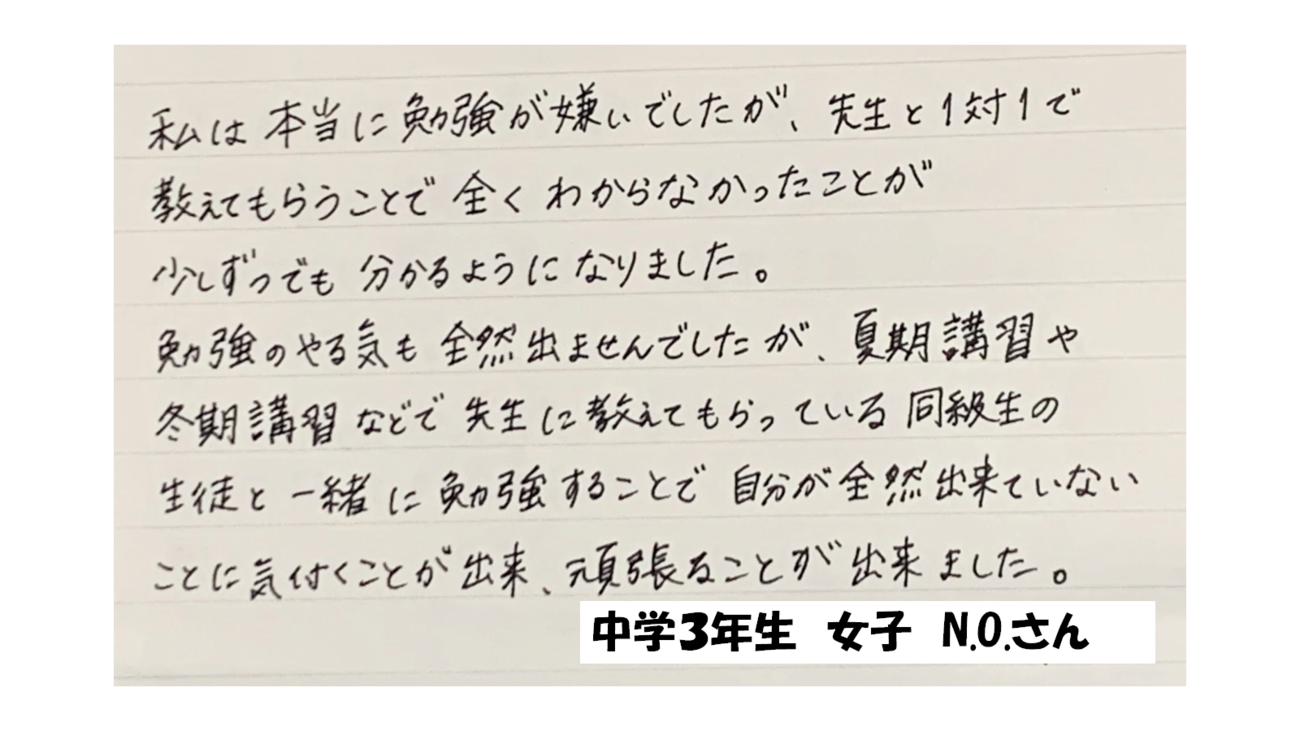 私は本当に勉強が嫌いでしたが、先生と1対1で
教えてもらうことで全くわからなかったことが
少しずつでも分かるようになりました。
勉強のやる気も全然出ませんでしたが、夏期講習や
冬期講習などで先生に教えてもらっている同級生の
生徒と一緒に勉強することで自分が全然出来ていない
ことに気付くことが出来、頑張ることが出来ました。
中学3年生 女子 N.O.さん